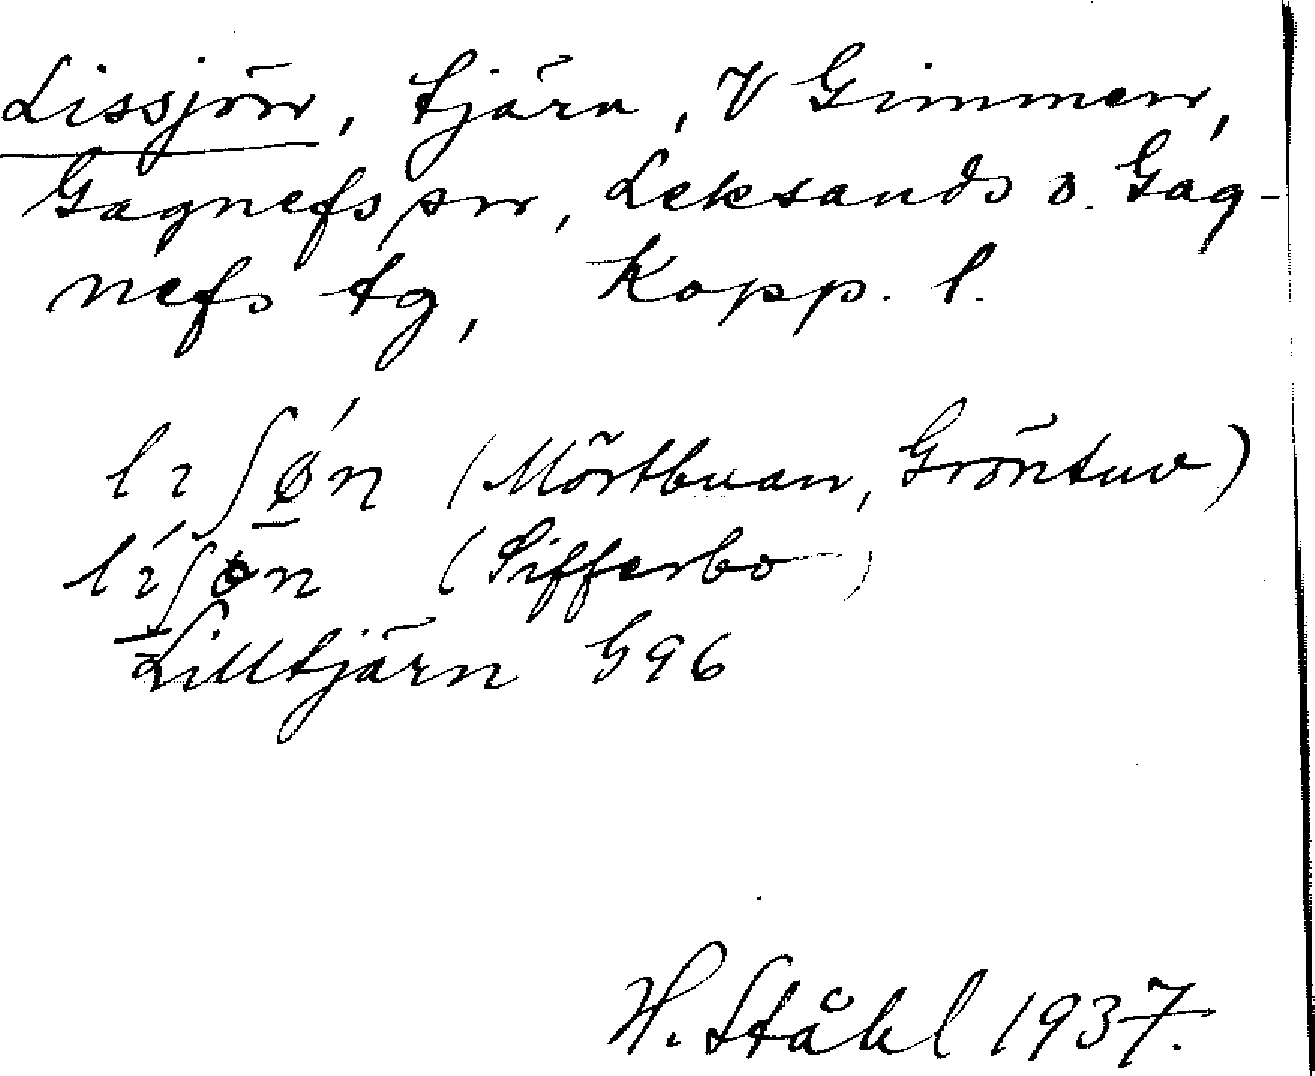 Lissjön, tjärn, V Gimmen,
Gagnefs sn, Leksands o. Gag-
nefs tg, Kopp. l.
lıʃǿn (Mörtbuan, Gröntuv)
lı́ʃøn (Sifferbo)
Lilltjärn G96
H. Ståhl 1937.